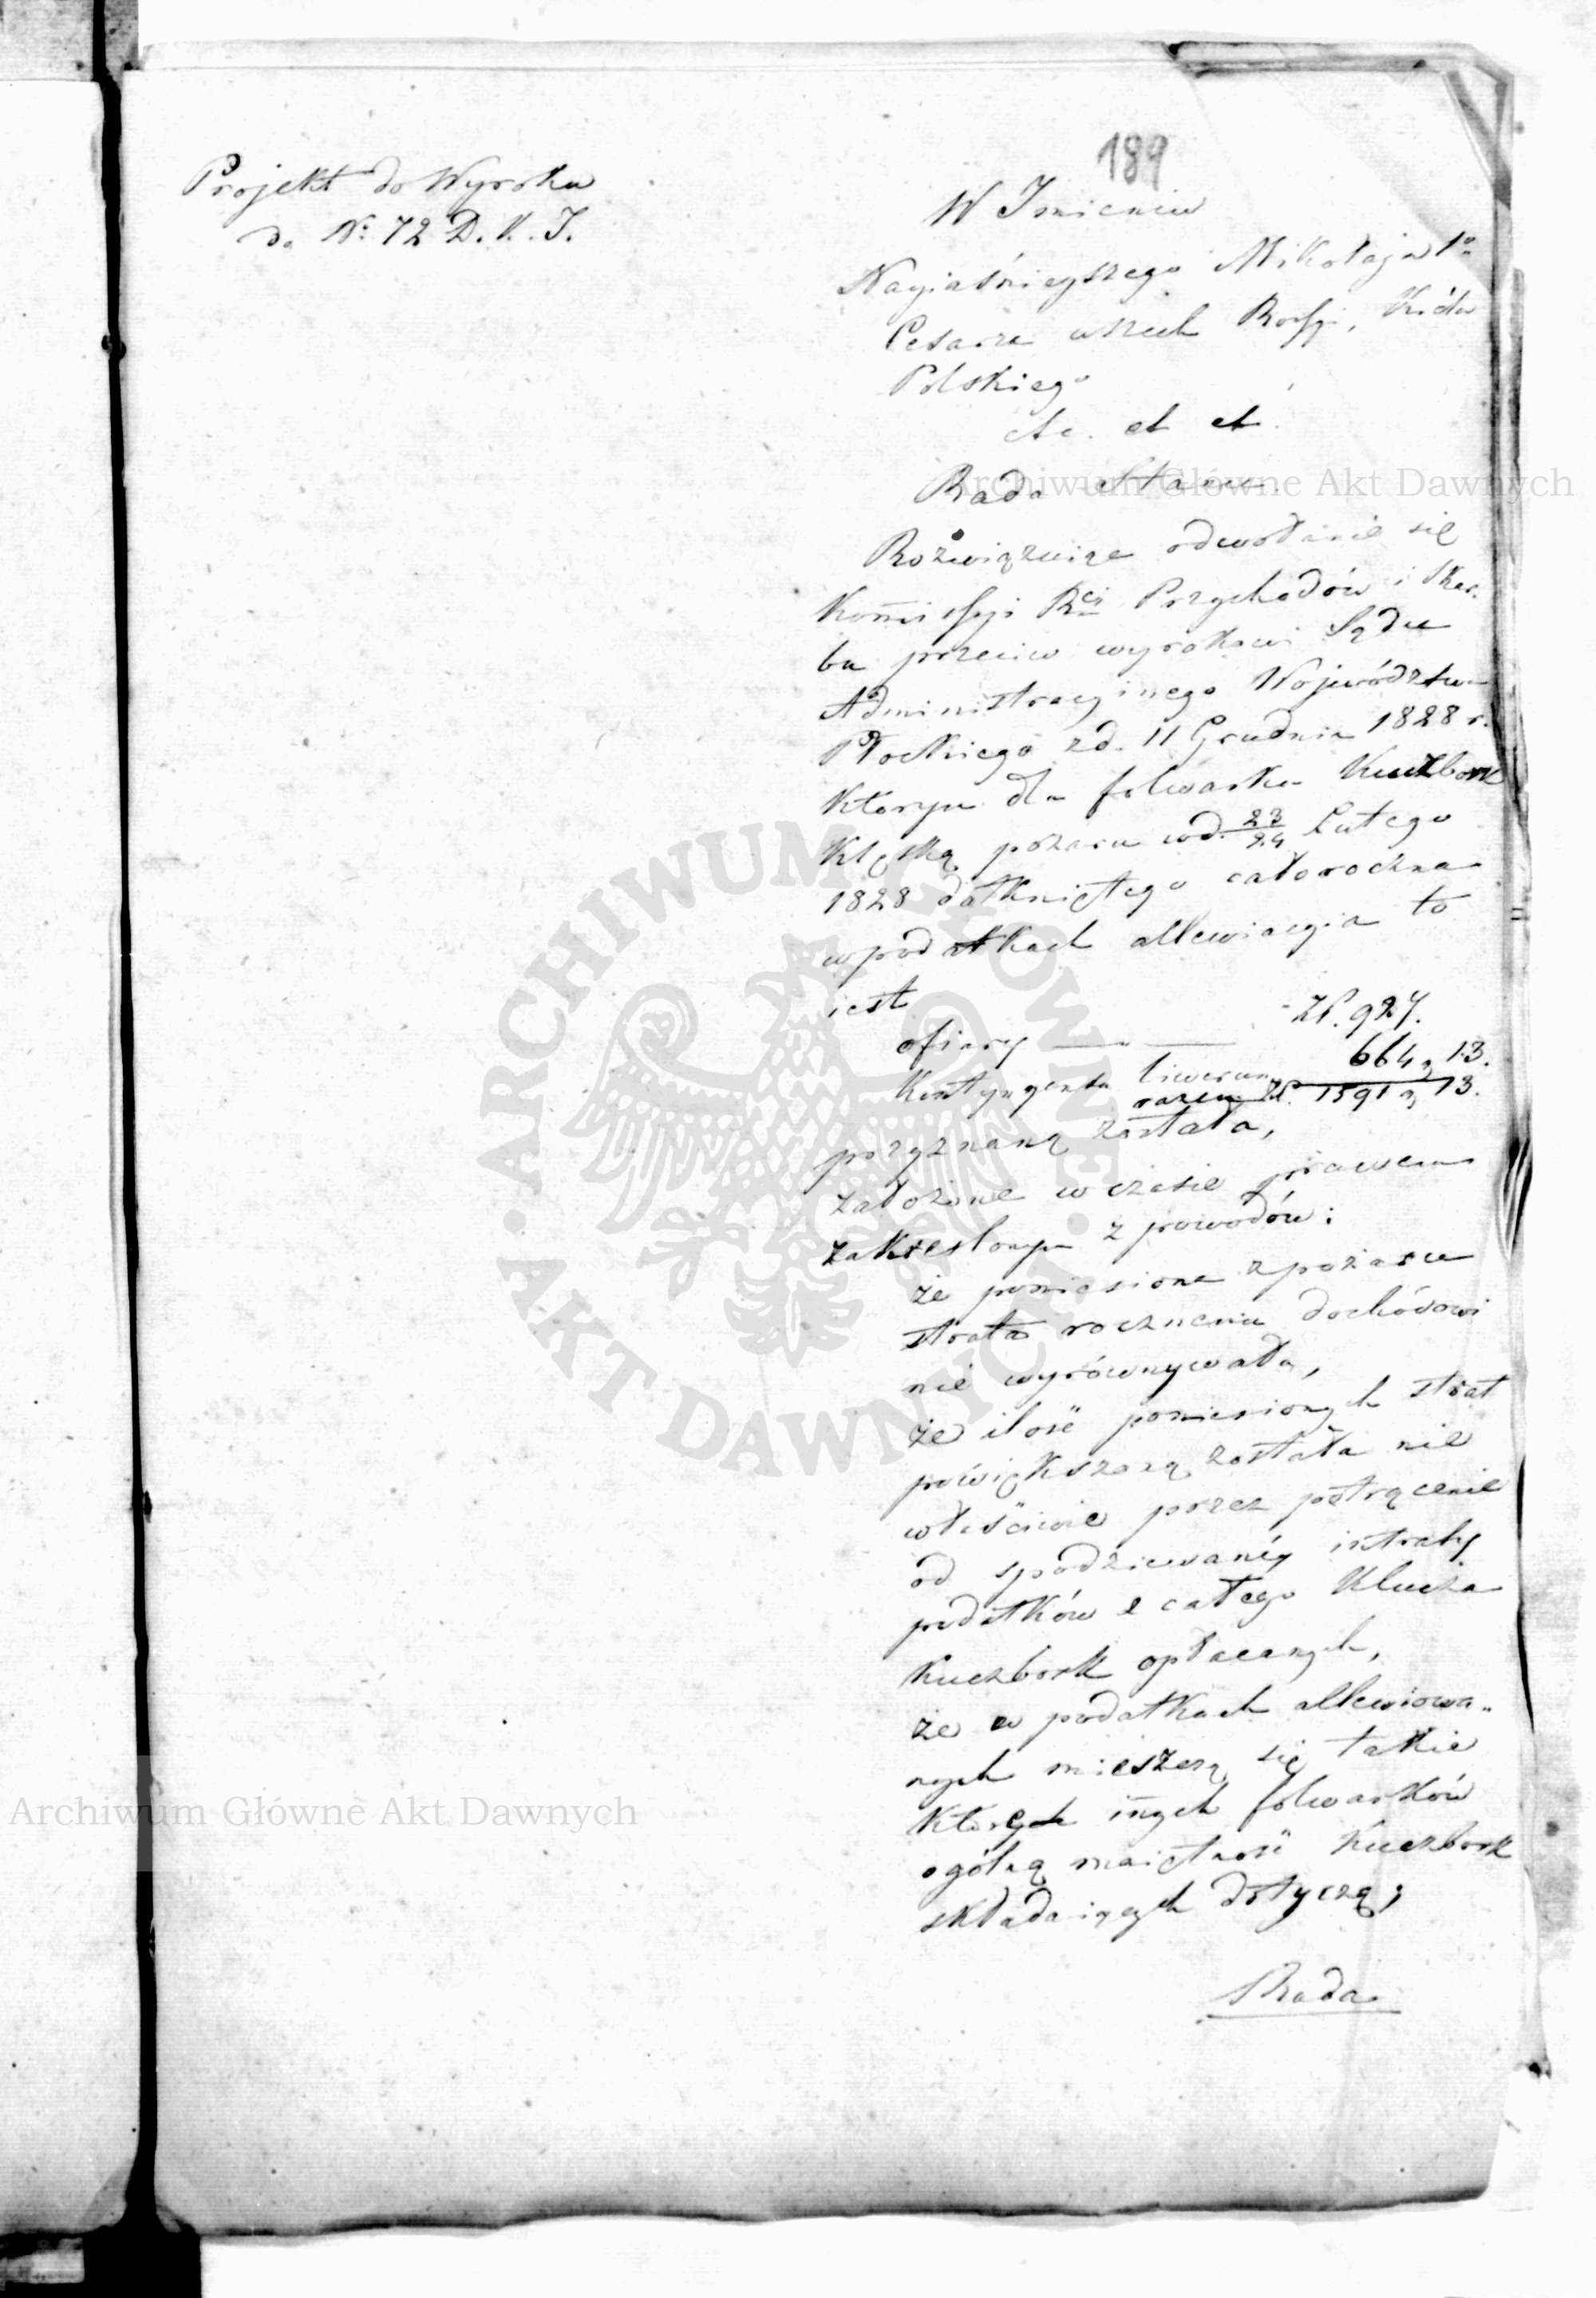 189
Projekt do Wyroku
do Nº 72 D. K. J.
W Imieniu
Nayiaśnieyszego Mikołaja 1º
Cesarza wszech Rossyi, Króla
Polskiego
etc. et et.
Rada Stanu
Rozwiązuiąc odwołanie się
Kom̄issyi Rcj Przychodów i Skar-
bu przeciw wyrokowi Sądu
Administracyinego Województwa
Płockiego z d. 11 Grudnia 1828 r.
którym dla folwarku Kuczbork
klęską pożaru w d. 23/24 Lutego
1828 dotkniętego całoroczna
w podatkach allewiacyia to
iest
ofiary — — Zł. 927.
Kontyngensu liwerun. 664 g 13.
razem Zł. 1591 g 13.
przyznaną została,
założone w czasie prawem
zakreslonym z powodów:
że poniesiona z pożaru
strata rocznemu dochodowi
nie wyrównywała,
że ilość poniesionych strat
powiększoną została nie
właściwie przez potrącenie
od spodziewanéy intraty
podatków z całego Klucza
Kuczbork opłacanych,
że w podatkach allewiowa-
nych mieszczą się takie
których in̄ych folwarków
ogólną maiętność Kuczbork
składaiących dotyczą;
Rada
Archiwum Główne Akt Dawnych
Archiwum Główne Akt Dawnych
ARCHIWUM GŁÓWNE AKT DAWNYCH